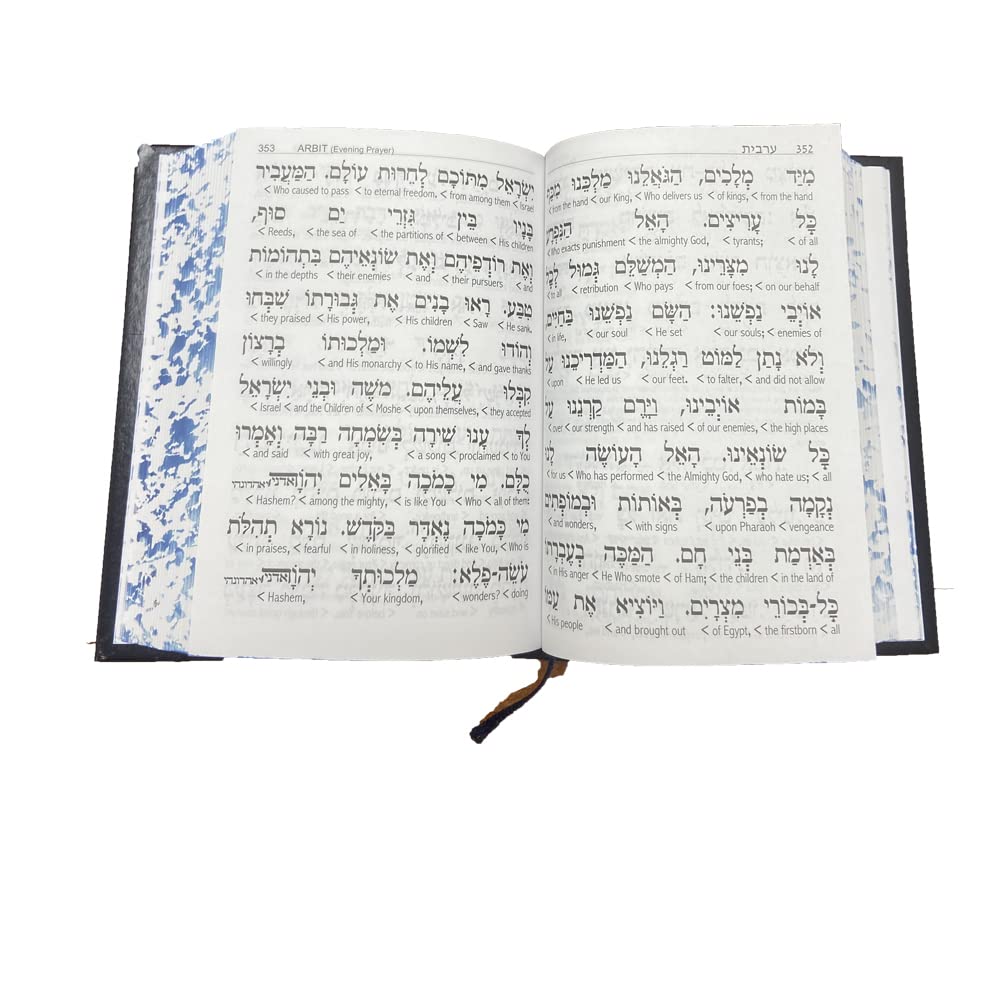 ערבית 352
מִיַּד מְלָכִים, הַגּוֹאֲלֵנוּ מַלְכֵּנוּ
< from the hand < our King, < Who delivers us < of kings, < from the hand
כׇּל עָרִיצִים. הָאֵל
< Who exacts punishment < the almighty God, < tyrants; < of all
לָנוּ מִצָּרֵינוּ, הַמְשַׁלֵּם גְּמוּל
< to all < retribution < Who pays < from our foes; < on our behalf
אוֹיְבֵי נַפְשֵׁנוּ: הַשָּׂם נַפְשֵׁנוּ בַּחַיִּים
< in life, < our soul < He set < our souls; < enemies of
וְלֹא נָתַן לַמּוֹט רַגְלֵנוּ, הַמַּדְרִיכֵנוּ
< upon < He led us < our feet. < to falter, < and did not allow
בָּמוֹת אוֹיְבֵינוּ, וַיָּרֶם קַרְנֵנוּ
< over < our strength < and has raised < of our enemies, < the high places
כׇּל שׂוֹנְאֵינוּ. הָאֵל הָעוֹשֶׂה לָנוּ
< for us < Who has performed < the Almighty God, < who hate us; < all
נְקָמָה בְּפַרְעֹה, בְּאוֹתוֹת וּבְמוֹפְתִים
< and wonders, < with signs < upon Pharaoh < vengeance
בְּאַדְמַת בְּנֵי חָם. הַמַּכֶּה בְעֶבְרָתוֹ
< in His anger < He Who smote < of Ham; < the children < in the land of
כׇּל-בְּכוֹרֵי מִצְרָיִם. וַיּוֹצִיא אֶת עַמּוֹ
< His people < and brought out < of Egypt, < the firstborn < all
353 ARBIT (Evening Prayer)
יִשְׂרָאֵל מִתּוֹכָם לְחֵרוּת עוֹלָם. הַמַּעֲבִיר
< Who caused to pass < to eternal freedom, < from among them < Israel
בָּנָיו בֵּין גִּזְרֵי יַם סוּף,
< Reeds, < the sea of < the partitions of < between < His children
וְאֶת רוֹדְפֵיהֶם וְאֶת שׂוֹנְאֵיהֶם בִּתְהוֹמוֹת
< in the depths < their enemies < and < their pursuers < and
טִבַּע. רָאוּ בָנִים אֶת גְּבוּרָתוֹ שִׁבְּחוּ
< they praised < His power, < His children < Saw < He sank.
וְהוֹדוּ לִשְׁמוֹ. וּמַלְכוּתוֹ בְרָצוֹן
< willingly < and His monarchy < to His name, < and gave thanks
קִבְּלוּ עֲלֵיהֶם. מֹשֶׁה וּבְנֵי יִשְׂרָאֵל
< Israel < and the Children of < Moshe < upon themselves, < they accepted
לְךָ עָנוּ שִׁירָה בְּשִׂמְחָה רַבָּה וְאָמְרוּ
< and said < with great joy, < a song < proclaimed < to You
כֻלָּם. מִי כָמֹכָה בָּאֵלִים יְהֹוָה
< Hashem? < among the mighty, < is like You < Who < all of them:
מִי כָּמֹכָה נֶאְדָּר בַּקֹּדֶשׁ. נוֹרָא תְהִלֹּת
< in praises, < fearful < in holiness, < glorified < like You, < Who is
עֹשֵׂה-פֶלֶא: מַלְכוּתְךָ יְהֹוָה
< Hashem, < Your kingdom, < wonders? < doing